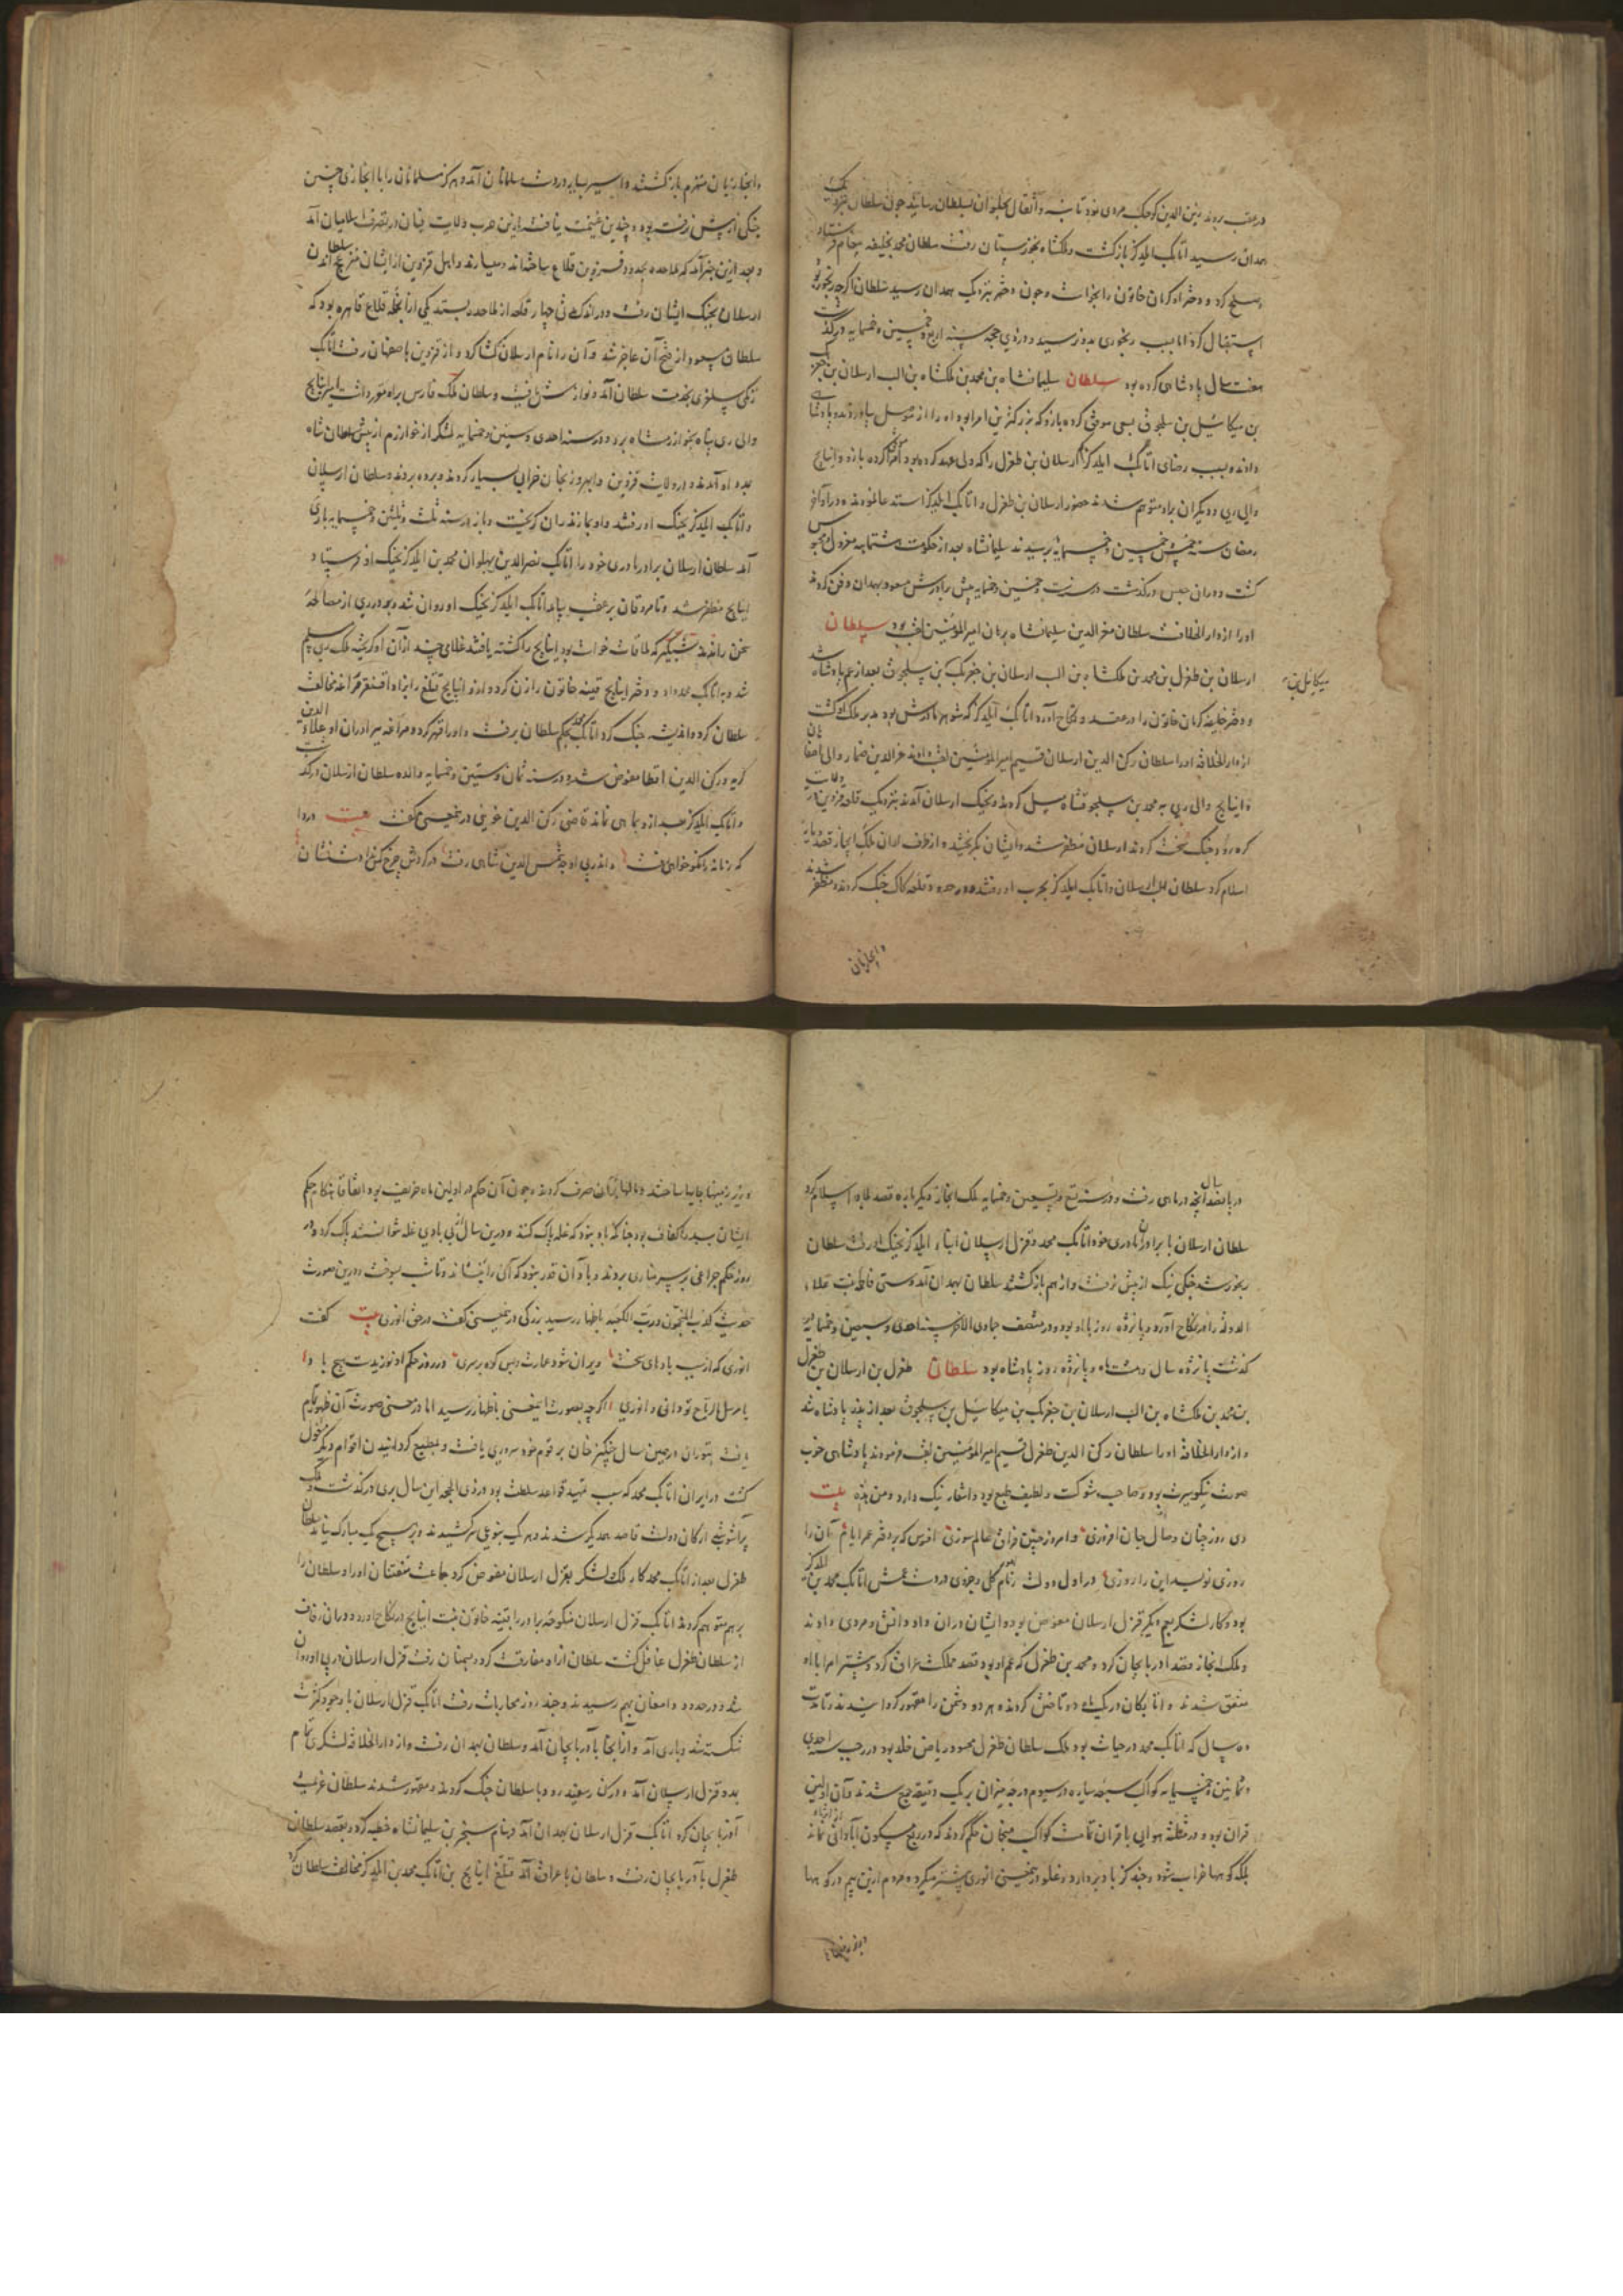 در عقب برود زین الدین کوجک مردی نمود تا بنه و اثقال بحلوان بسلطان رسانید جون سلطان نزدیک
همدان رسید اتابک ایلدکز بازکشت و ملکشاه بخوزستان رفت سلطان محمد بخلیفه پیغام فرستاد
و صلح کرد و دختر او کرمان خاتون را بخواست و جون دختر بنزدیک همدان رسید سلطان اکرجه رنجور بود
استقبال کرد اما بسبب رنجوری بدو نرسید و در ذی حجه سنه اربع و خمسین و خمسمایه درگذشت
هفت سال پادشاهی کرده بود سلطان سلیمانشاه بن محمد بن ملکشاه بن الب ارسلان بن جغربک
بن میکائیل بن سلجوق بسعی موفق کرده بازو که بزرکترین امرا بود او را از موصل بیاوردند و پادشاهی
دادند و بسبب رضای اتابک ایلدکز ارسلان بن طغرل را که ولی عهد کرده بود کرده بازو و اینانج
والی ری و دیکران براو متوهم شدند حضور ارسلان بن طغرل و اتابک ایلدکز استدعا نمودند و در اواخر
رمضان سنه خمس و خمسین و خمسمایه برسیدند سلیمانشاه بعد از حکومت ششماهه معزول و محبوس
کشت و در ان حبس درگذشت در سنه ست و خمسین و خمسمایه پیش برادرش مسعود بهمدان دفن کردند
او را از دار الخلافت سلطان معز الدین سلیمانشاه برهان امیر المؤمنین لقب بود سلطان
ارسلان بن طغرل بن محمد بن ملکشاه بن الب ارسلان بن جغربک بن سلجوق بعد از عم پادشاه شد
میکائیل بن
و دختر خلیفه کرمان خاتون را در عقد و نکاح آورد اتابک ایلدکز که شوهر مادرش بود مدبر ملک او کشت
از دار الخلافة او را سلطان رکن الدین ارسلان قسیم امیر المؤمنین لقب دادند عز الدین صتمار والی اصفهان
و اینانج والی ری به محمد بن سلجوقشاه میل کردند و بجنک ارسلان آمدند بنزدیک قلعه قزوین ولایت
کره رود جنک سخت کردند ارسلان مظفر شد و ایشان بکریختند و از طرف اران ملک ابخاز قصد دیار
اسلام کرد سلطان ارسلان و اتابک ایلدکز بحرب او رفتند و در حدود قلعه کاک جنک کردند و مظفر شدند
و ابخازیان
و ابخازیان منهزم بازکشتند و اسیر بسیار در دست مسلمانان آمد و هرکز مسلمانان را با ابخازی جنین
جنکی از پیش نرفته بود و جندین غنیمت نیافته و ازین حرب ولایت ایشان در تصرف اسلامیان آمد
و بعد ازین خبر آمد که ملاحده بحدود قزوین قلاع ساخته اند و بسیارند و اهل قزوین از ایشان متزعج اند سلطان
ارسلان بجنک ایشان رفت و در اندک مدتی چهار قلعه از ملاحده بستد یکی از آنجمله قلاع قاهره بود که
سلطان مسعود از فتح آن عاجز شد و آن را نام ارسلان کشا کرد و از قزوین باصفهان رفت اتابک
زنکی سلغری بخدمت سلطان آمد و نوازش یافت و سلطان ملک فارس براو مقرر داشت امیر اینانج
والی ری پناه بخوارزمشاه برد و در سنه احدی و ستین و خمسمایه لشکر از خوارزم از پیش سلطان شاه
بمدد او آمدند و در ولایت قزوین و ابهر و زنجان خرابی بسیار کردند و برده بردند و سلطان ارسلان
و اتابک ایلدکز بجنک او رفتند و او بمازندران کریخت و باز در سنه ثلث و ستین و خمسمایه بری
آمد سلطان ارسلان برادر مادری خود را اتابک نصر الدین بهلوان محمد بن ایلدکز بجنک او فرستاد و
اینانج مظفر شد و تا مزدقان بر عقب بیامد اتابک ایلدکز بجنک او روان شد و بعد در ری از مصالحه
سخن راندند شبیکیر که ملاقات خواست بود اینانج را کشته یافتند غلامی جند از آن او کریخته ملک ری مسلم
شد و به اتابک محمد داد و دختر اینانج قتیبه خاتون را زن کرد و ازو اینانج قتلغ را بزاد اقسنقر مراغه مخالفت
سلطان کرد و اندیشه جنک کرد اتابک محمد بحکم سلطان برفت و او را قهر کرد و مراغه ببرادران او علاء الدین
کربه و رکن الدین اقطاع مفوض شد و در سنه ثمان و ستین و خمسمایه والده سلطان ارسلان درگذشت
و اتابک ایلدکز بعد ازو بماهی نماند قاضی رکن الدین خویی در ینمعنی کفت بیت دردا
که زمانه را نکو خواهی رفت و اندر پی او جو شمس الدین شاهی رفت در کردش جرخ کس نداد ست نشان
در باب بقصد آنچه در ماهی رفت و در سنه تسع و ستین و خمسمایه ملک ابخاز دیکرباره قصد بلاد اسلام کرد
سلطان ارسلان با برادران مادری خود اتابک محمد و قزل ارسلان ابناء ایلدکز بجنک او رفت سلطان
رنجور شد جنکی نیک از پیش نرفت و از هم بازکشتند سلطان بهمدان آمد و ستی فاطمه بنت علاء
الدوله را در نکاح آورد و پانزده روز با او بود و در منتصف جمادی الاخر سنه احدی و سبعین و خمسمایه
کذشت پانزده سال و هشت ماه و پانزده روز پادشاه بود سلطان طغرل بن ارسلان بن طغرل
بن محمد بن ملکشاه بن الب ارسلان بن جغربک بن میکائیل بن سلجوق بعد از پدر پادشاه شد
و از دار الخلافة او را سلطان رکن الدین طغرل قسیم امیر المؤمنین لقب فرمودند پادشاهی خوب
صورت نیکو سیرت بود و صاحب شوکت و لطیف طبع بود و اشعار نیک دارد و من هذه بیت
دی روز چنان وصال جان افروزی و امروز چنین فراق عالم سوزی افسوس که بر دفتر عمر ایام آن را
روزی نویسد این را روزی در اول دولت زمام کلی و جزوی در دست عمش اتابک محمد بن ایلدکز
بود و کار لشکر بعم دیکر قزل ارسلان مفوض بود و ایشان در ان داد دانش و مردی دادند
و ملک ابخاز قصد آذربایجان کرد و محمد بن طغرل که عم او بود قصد مملکت عراق کرد و بیشتر امرا با او
متفق شدند و اتابکان در یک ماه دو تاختن کردند و هر دو دشمن را مقهور کردانیدند و تا مدت
ده سال که اتابک محمد در حیات بود ملک سلطان طغرل محسود ریاض خلد بود و در رجب سنه احدی
و ثمانین و خمسمایه کواکب سبعه سیاره در سیوم درجه میزان بیک دقیقه جمع شدند و آن اولین
قران بود و در مثلثه هوایی با قران تمامت کواکب منجمان حکم کردند که در ربع مسکون آبادانی نماند
بلکه کوهها خراب شود و جند کز باد بردارد و غلو در ینمعنی انوری بیشتر میکرد و مردم ازین بیم در کوهها
و بزیر زمینها جایها ساختند و مالها بر آن صرف کردند و جون آن حکم در اولین ماه خریف بود اتفاقا بنکام حکم
ایشان بسبد بود جنانکه باد نبود که غله پاک کنند و در ین سال از بی بادی غله نتوانستند پاک کرد و در
روز حکم جراغی بر سر مناری بردند و باد آن قدر نبود که آن را بنشاند و تا شب بسوخت و در ین صورت
حدیث کذب المنجمون و رب الکعبه باظهار رسید بزرکی در ینمعنی کفت در حق انوری بیت کفت
انوری که از سبب بادهای سخت ویران شود عمارت و بس کوه بر سری در روز حکم او نوزیدست هیچ باد
یا مرسل الریاح تو دانی و انوری اکرچه بصورت اینمعنی باظهار نرسید اما در معنی صورت آن ظهور تمام
یافت بتوران در همین سال چنکیز خان بر قوم خود سروری یافت و بمطیع کردانیدن اقوام دیکر مشغول
کشت و در ایران اتابک محمد که سبب تمهید قواعد سلطنت بود در ذی الحجه این سال بری درگذشت و ملک
پرآشوب شد ارکان دولت قاصد همدیکر شدند و هر یک بنوعی سر کشیدند و بر هیچ یک مبارک نیامد سلطان
طغرل بعد از اتابک محمد کار ملک و لشکر بقزل ارسلان مفوض کرد جماعت مفتنان او را و سلطان را
بر هم متوهم کردند اتابک قزل ارسلان منکوحه برادر را قتیبه خاتون بنت اینانج در نکاح آورد و در ان زفاف
از سلطان طغرل غافل کشت سلطان ازو مفارقت کرد و بسمنان رفت قزل ارسلان در پی او روان
شد و در حدود دامغان بهم رسیدند و جند روز محاربات رفت اتابک قزل ارسلان با وجود کثرت
شکسته شد و بازی آمد و از آنجا بآذربایجان آمد و سلطان بهمدان رفت و از دار الخلافة لشکری تمام
بمدد قزل ارسلان آمد و در کنار سفیدرود با سلطان جنک کردند و مقهور شدند سلطان عزیمت
آذربایجان کرد اتابک قزل ارسلان بهمدان آمد و بنام سنجر بن سلیمانشاه خطبه کرد و بقصد سلطان
طغرل بآذربایجان رفت و سلطان با عراق آمد قتلغ اینانج بن اتابک محمد بن ایلدکز مخالفت سلطان کرد